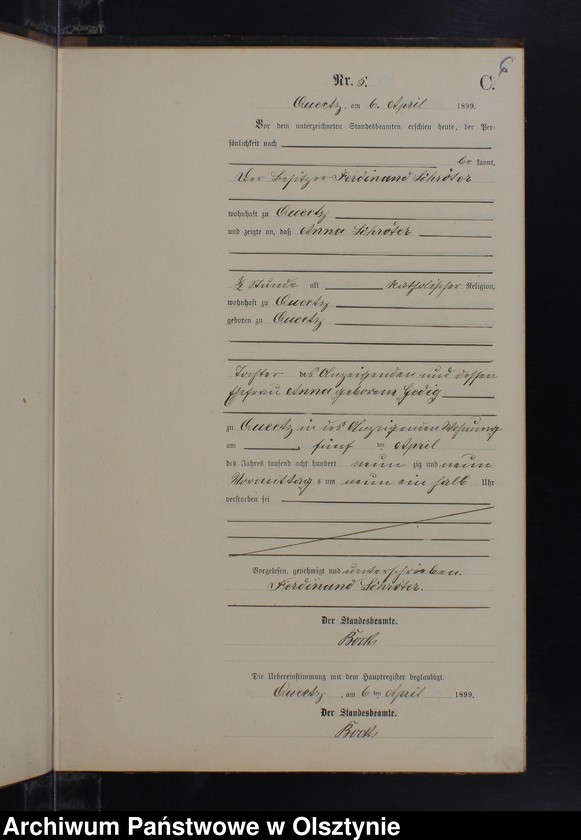 6
Nr. 5.
C.
Quertz, am 6. April 1899.
Vor dem unterzeichneten Standesbeamten erschien heute, der Per-
sönlichkeit nach
be kannt,
Der Besitzer Ferdinand Schröter
wohnhaft zu Quertz
und zeigte an, daß Anna Schröter
½ Stunde alt katholischer Religion,
wohnhaft zu Quertz
geboren zu Quertz
Tochter des Anzeigenden und dessen
Ehefrau Anna geborene
zu Quertz in des Anzeigenden Wohnung
am fünf ten April
des Jahres tausend acht hundert neun zig und neun
Vormittag s um neun ein halb Uhr
verstorben sei
Vorgelesen, genehmigt und unterschrieben.
Ferdinand Schröter.
Der Standesbeamte.
Bock
Die Uebereinstimmung mit dem Hauptregister beglaubigt.
Quertz, am 6 ten April 1899.
Der Standesbeamte.
Bock
Archiwum Państwowe w Olsztynie